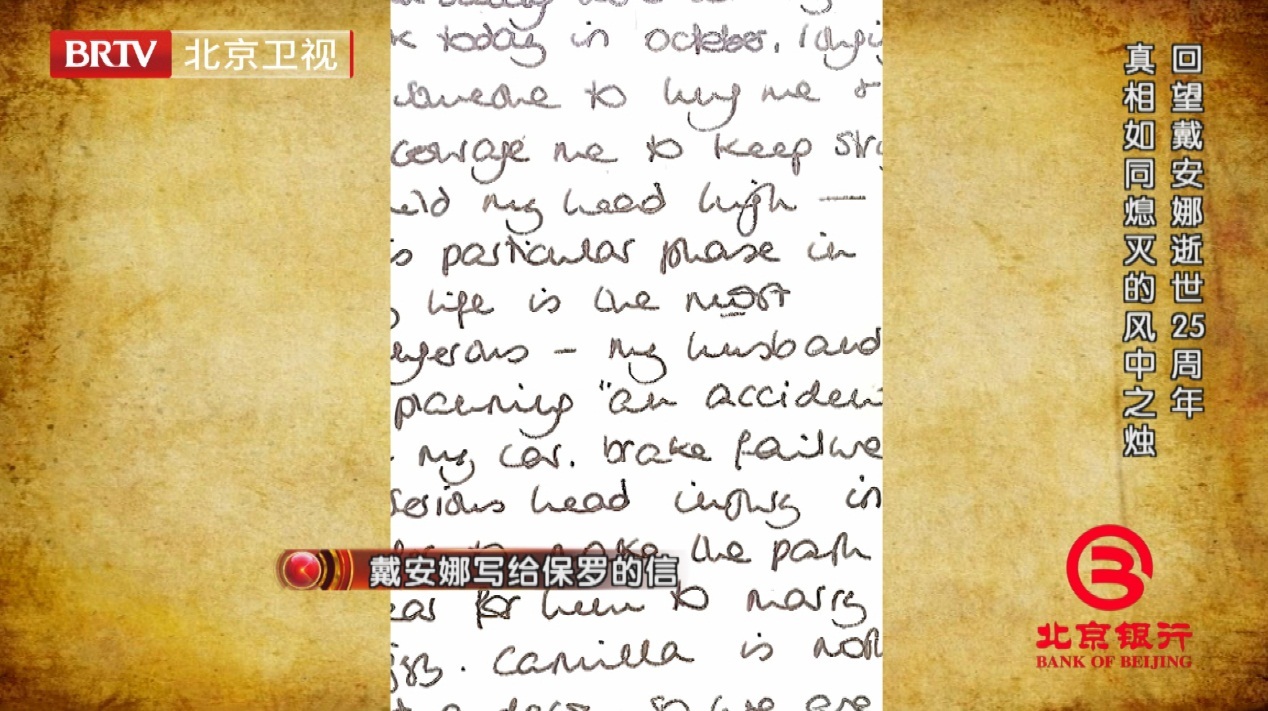 BRTV 北京卫视
k today in october, longi
someone to hug me &
courage me to keep stro
eld my head high —
s particular phase in
life is the most
ngerous - my husband
planning "an acciden
my car. brake failure
serious head injury in
make the path
ear for him to marry
iggy. Camilla is not
so we are
戴安娜写给保罗的信
回望戴安娜逝世25周年
真相如同熄灭的风中之烛
北京银行
BANK OF BEIJING